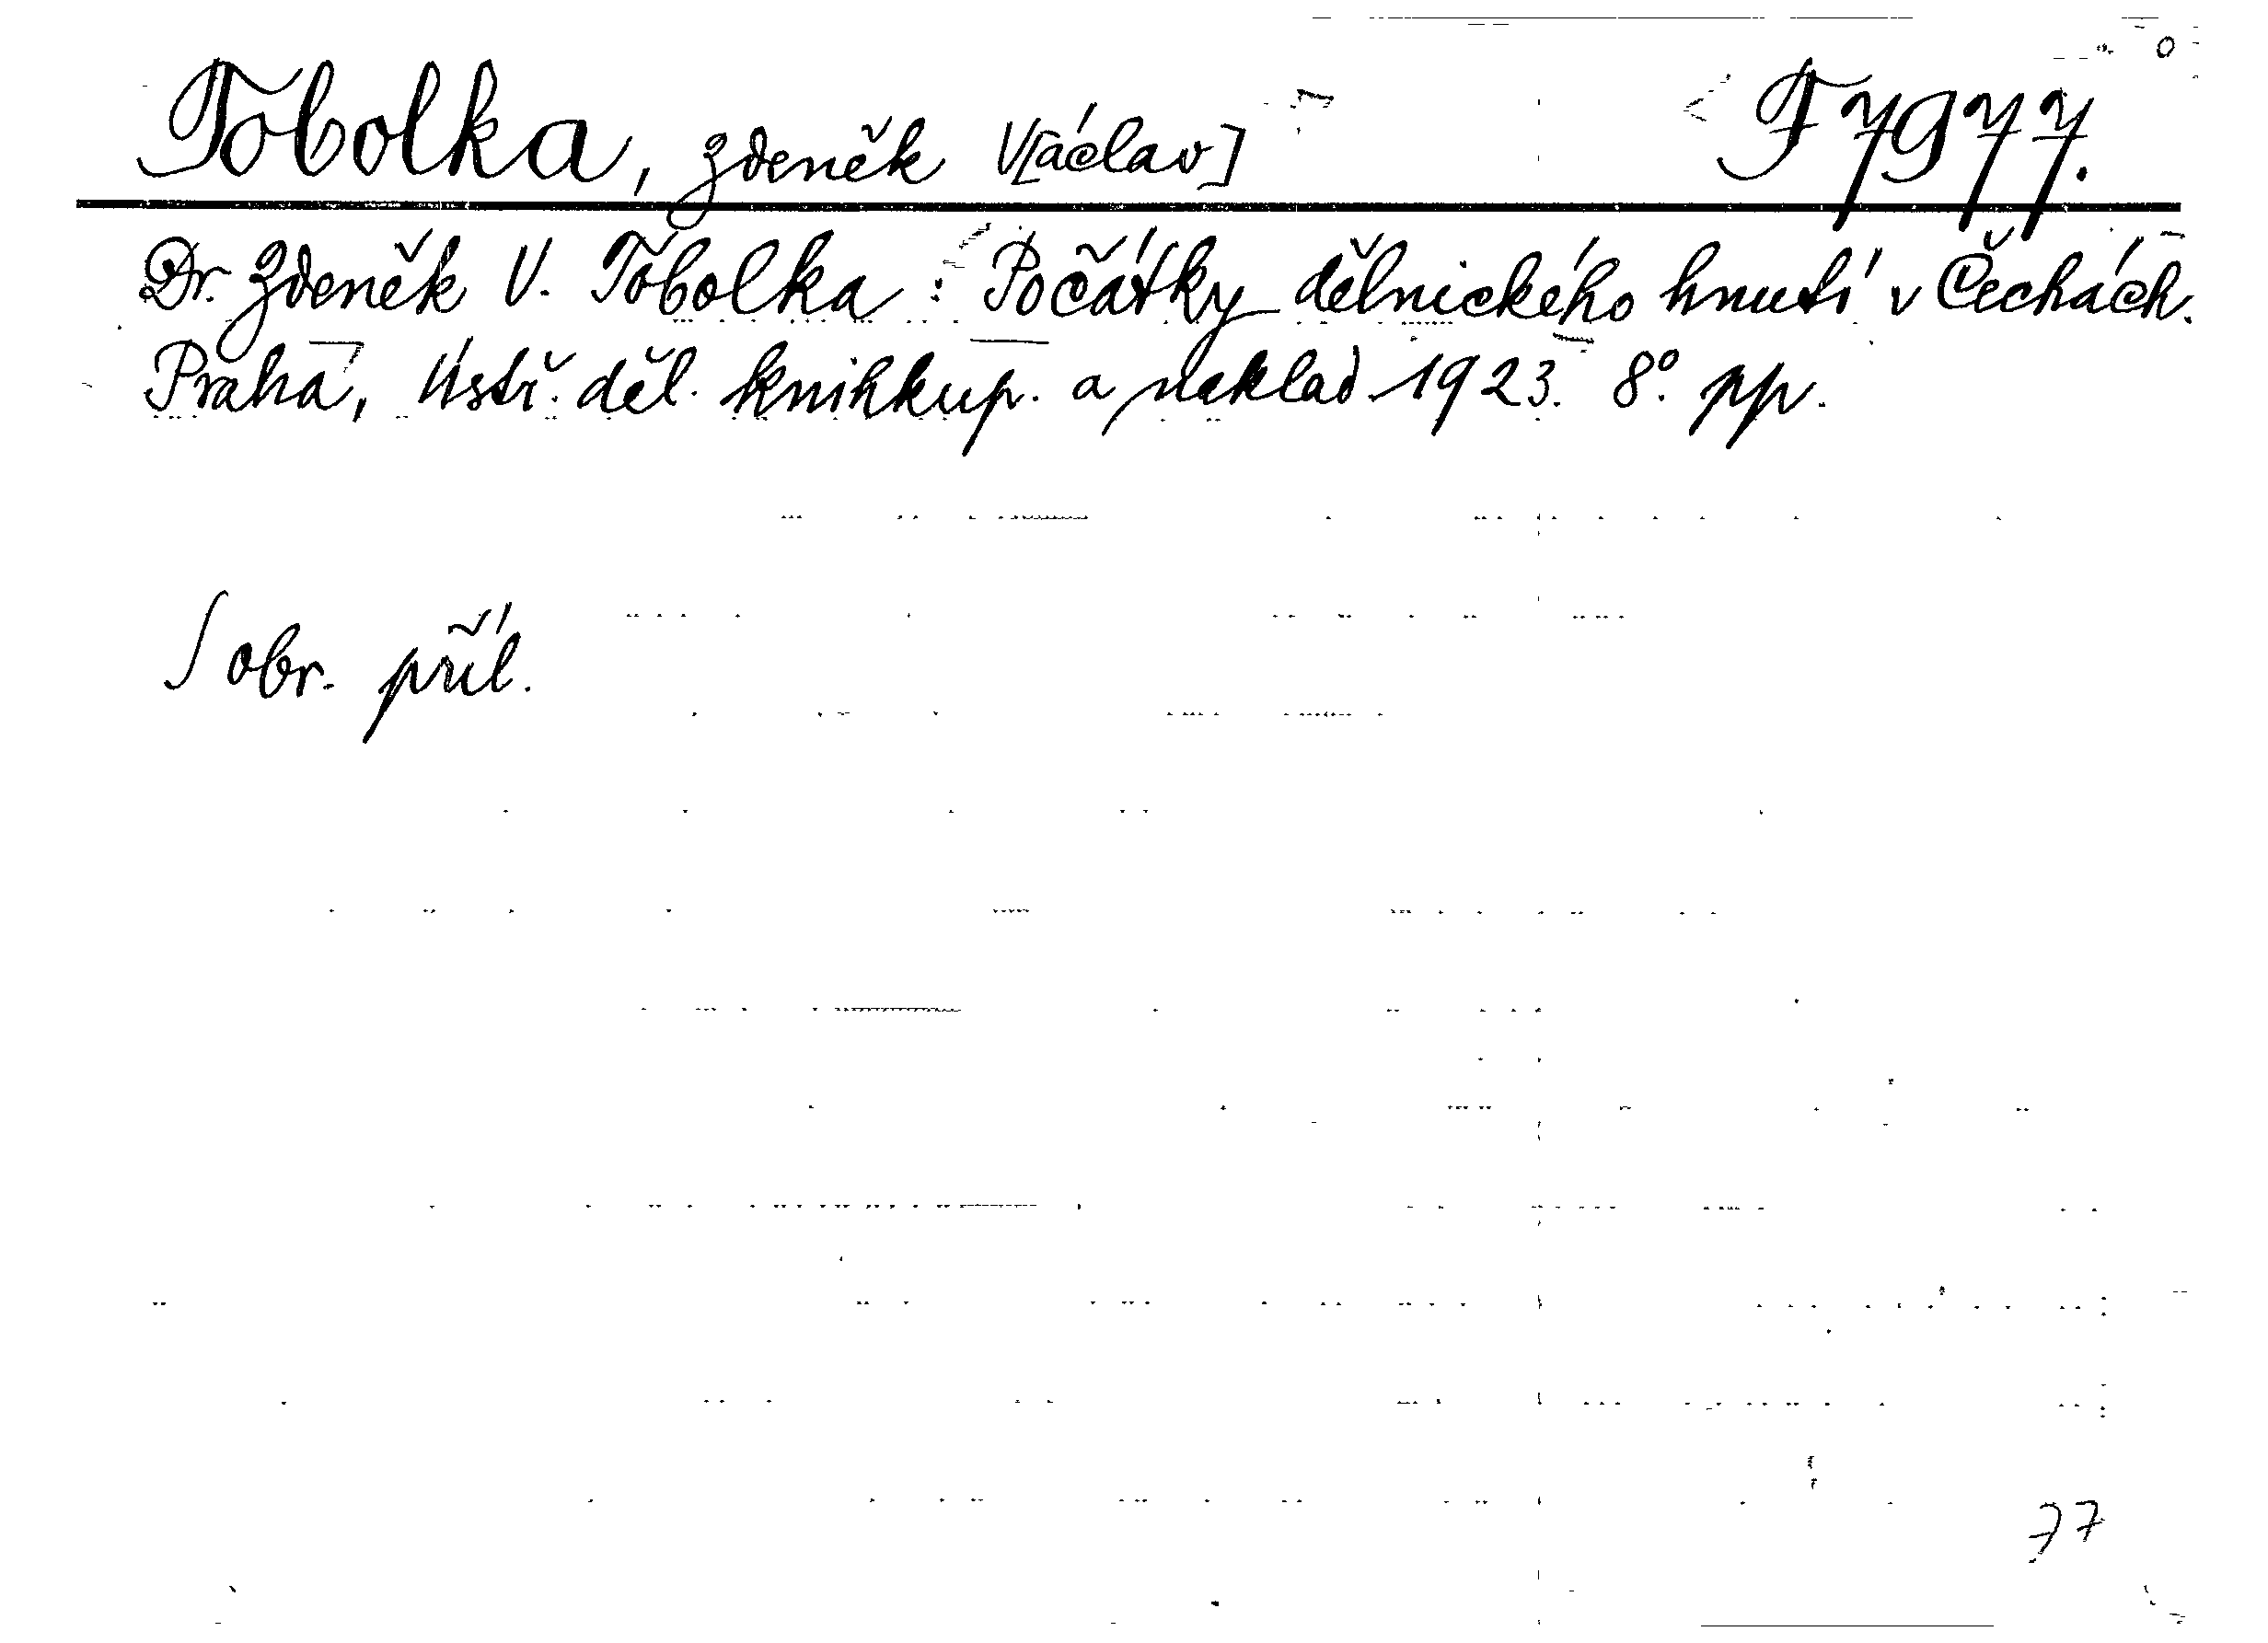 Tobolka, Zdeněk V[áclav] F 7977.
Dr. Zdeněk V. Tobolka: Počátky dělnického hnutí v Čechách.
Praha, Ústř. děl. knihkup. a naklad. 1923. 8° pp.
S obr. příl.
77